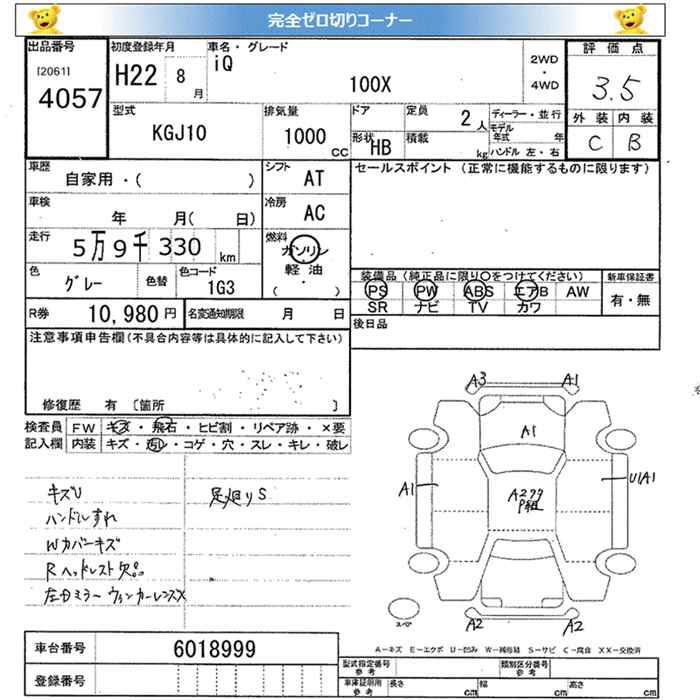 完全ゼロ切りコーナー
出品番号 初度登録年月 車名・グレード 評価点
[2061] 4057 H22 8月 iQ 100X 2WD・4WD 3.5
型式 排気量 ドア 定員 ディーラー・並行 外装 内装
KGJ10 1000cc 2人 モデル年式 年 C B
形状 HB 積載 kg ハンドル 左・右
車歴 シフト セールスポイント (正常に機能するものに限ります)
自家用・( ) AT
車検 冷房
年 月( 日) AC
走行 燃料
5万9千330km ガソリン
軽油
・
( )
色 色替 色コード 装備品 (純正品に限り○をつけてください) 新車保証書
グレー 1G3 PS PW ABS エアB AW 有・無
SR ナビ TV カワ
R券 10,980円 名変通知期限 月 日 後日品
注意事項申告欄(不具合内容等は具体的に記入して下さい)
修復歴 有 [箇所 ]
検査員 FW キズ・飛石・ヒビ割・リペア跡・×要
記入欄 内装 キズ・汚レ・コゲ・穴・スレ・キレ・破レ
キズU 足廻りS
ハンドルすれ
Wカバーキズ
Rヘッドレスト欠品
左ドミラーウィンカーレンズX
A3 A1
A1
A1 U1A1
A2 A2
スペア
A-キズ E-エクボ U-凹み W-補修跡 S-サビ C-腐食 XX-交換済
車台番号 6018999
登録番号
型式指定番号 参考 類別区分番号 参考
車庫証明用 参考 長さ cm 幅 cm 高さ cm